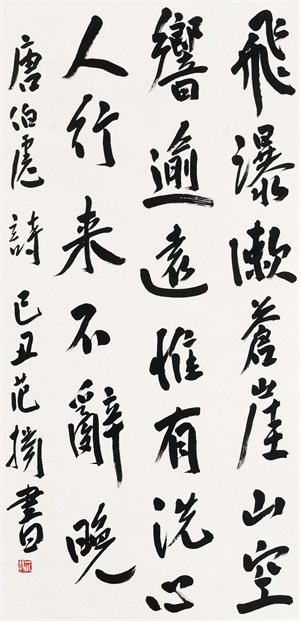 飛瀑漱蒼崖山空
響逾遠惟有洗心
人行来不辭晚
唐伯虎詩 己丑范揚書